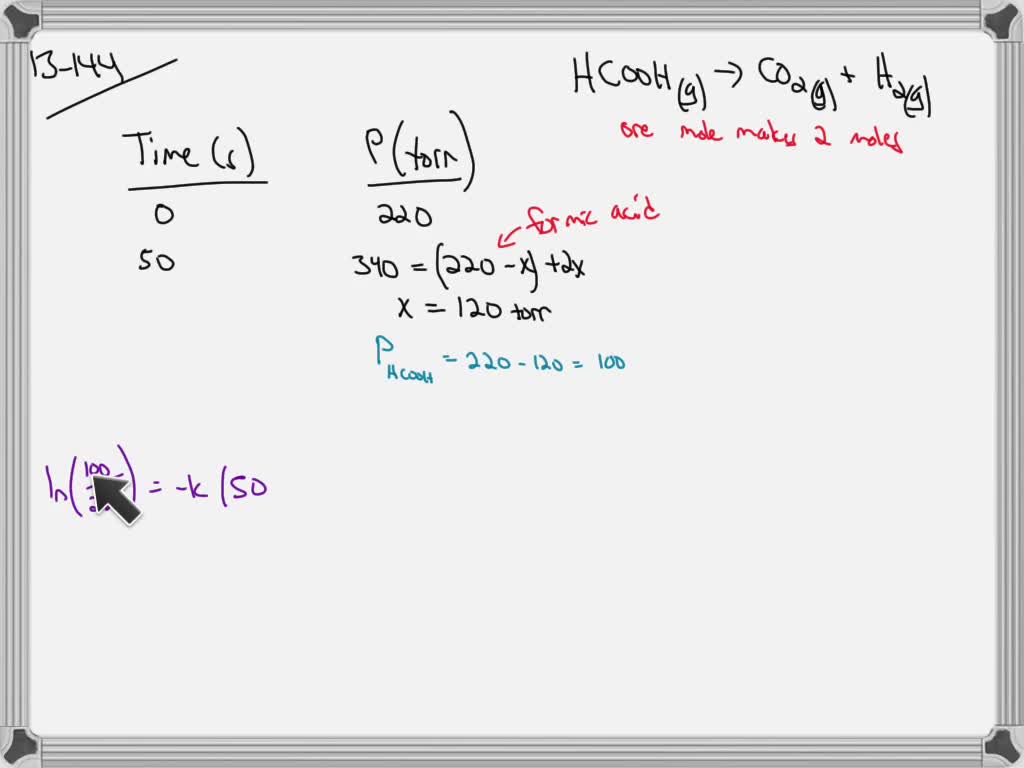 13-144
HCOOH(g) → CO2(g) + H2(g)
one mole makes 2 moles
Time (s) P(torr)
0 220
formic acid
50 340 = (220 - x) + 2x
x = 120 torr
P HCOOH = 220 - 120 = 100
ln(100 ) = -k (50